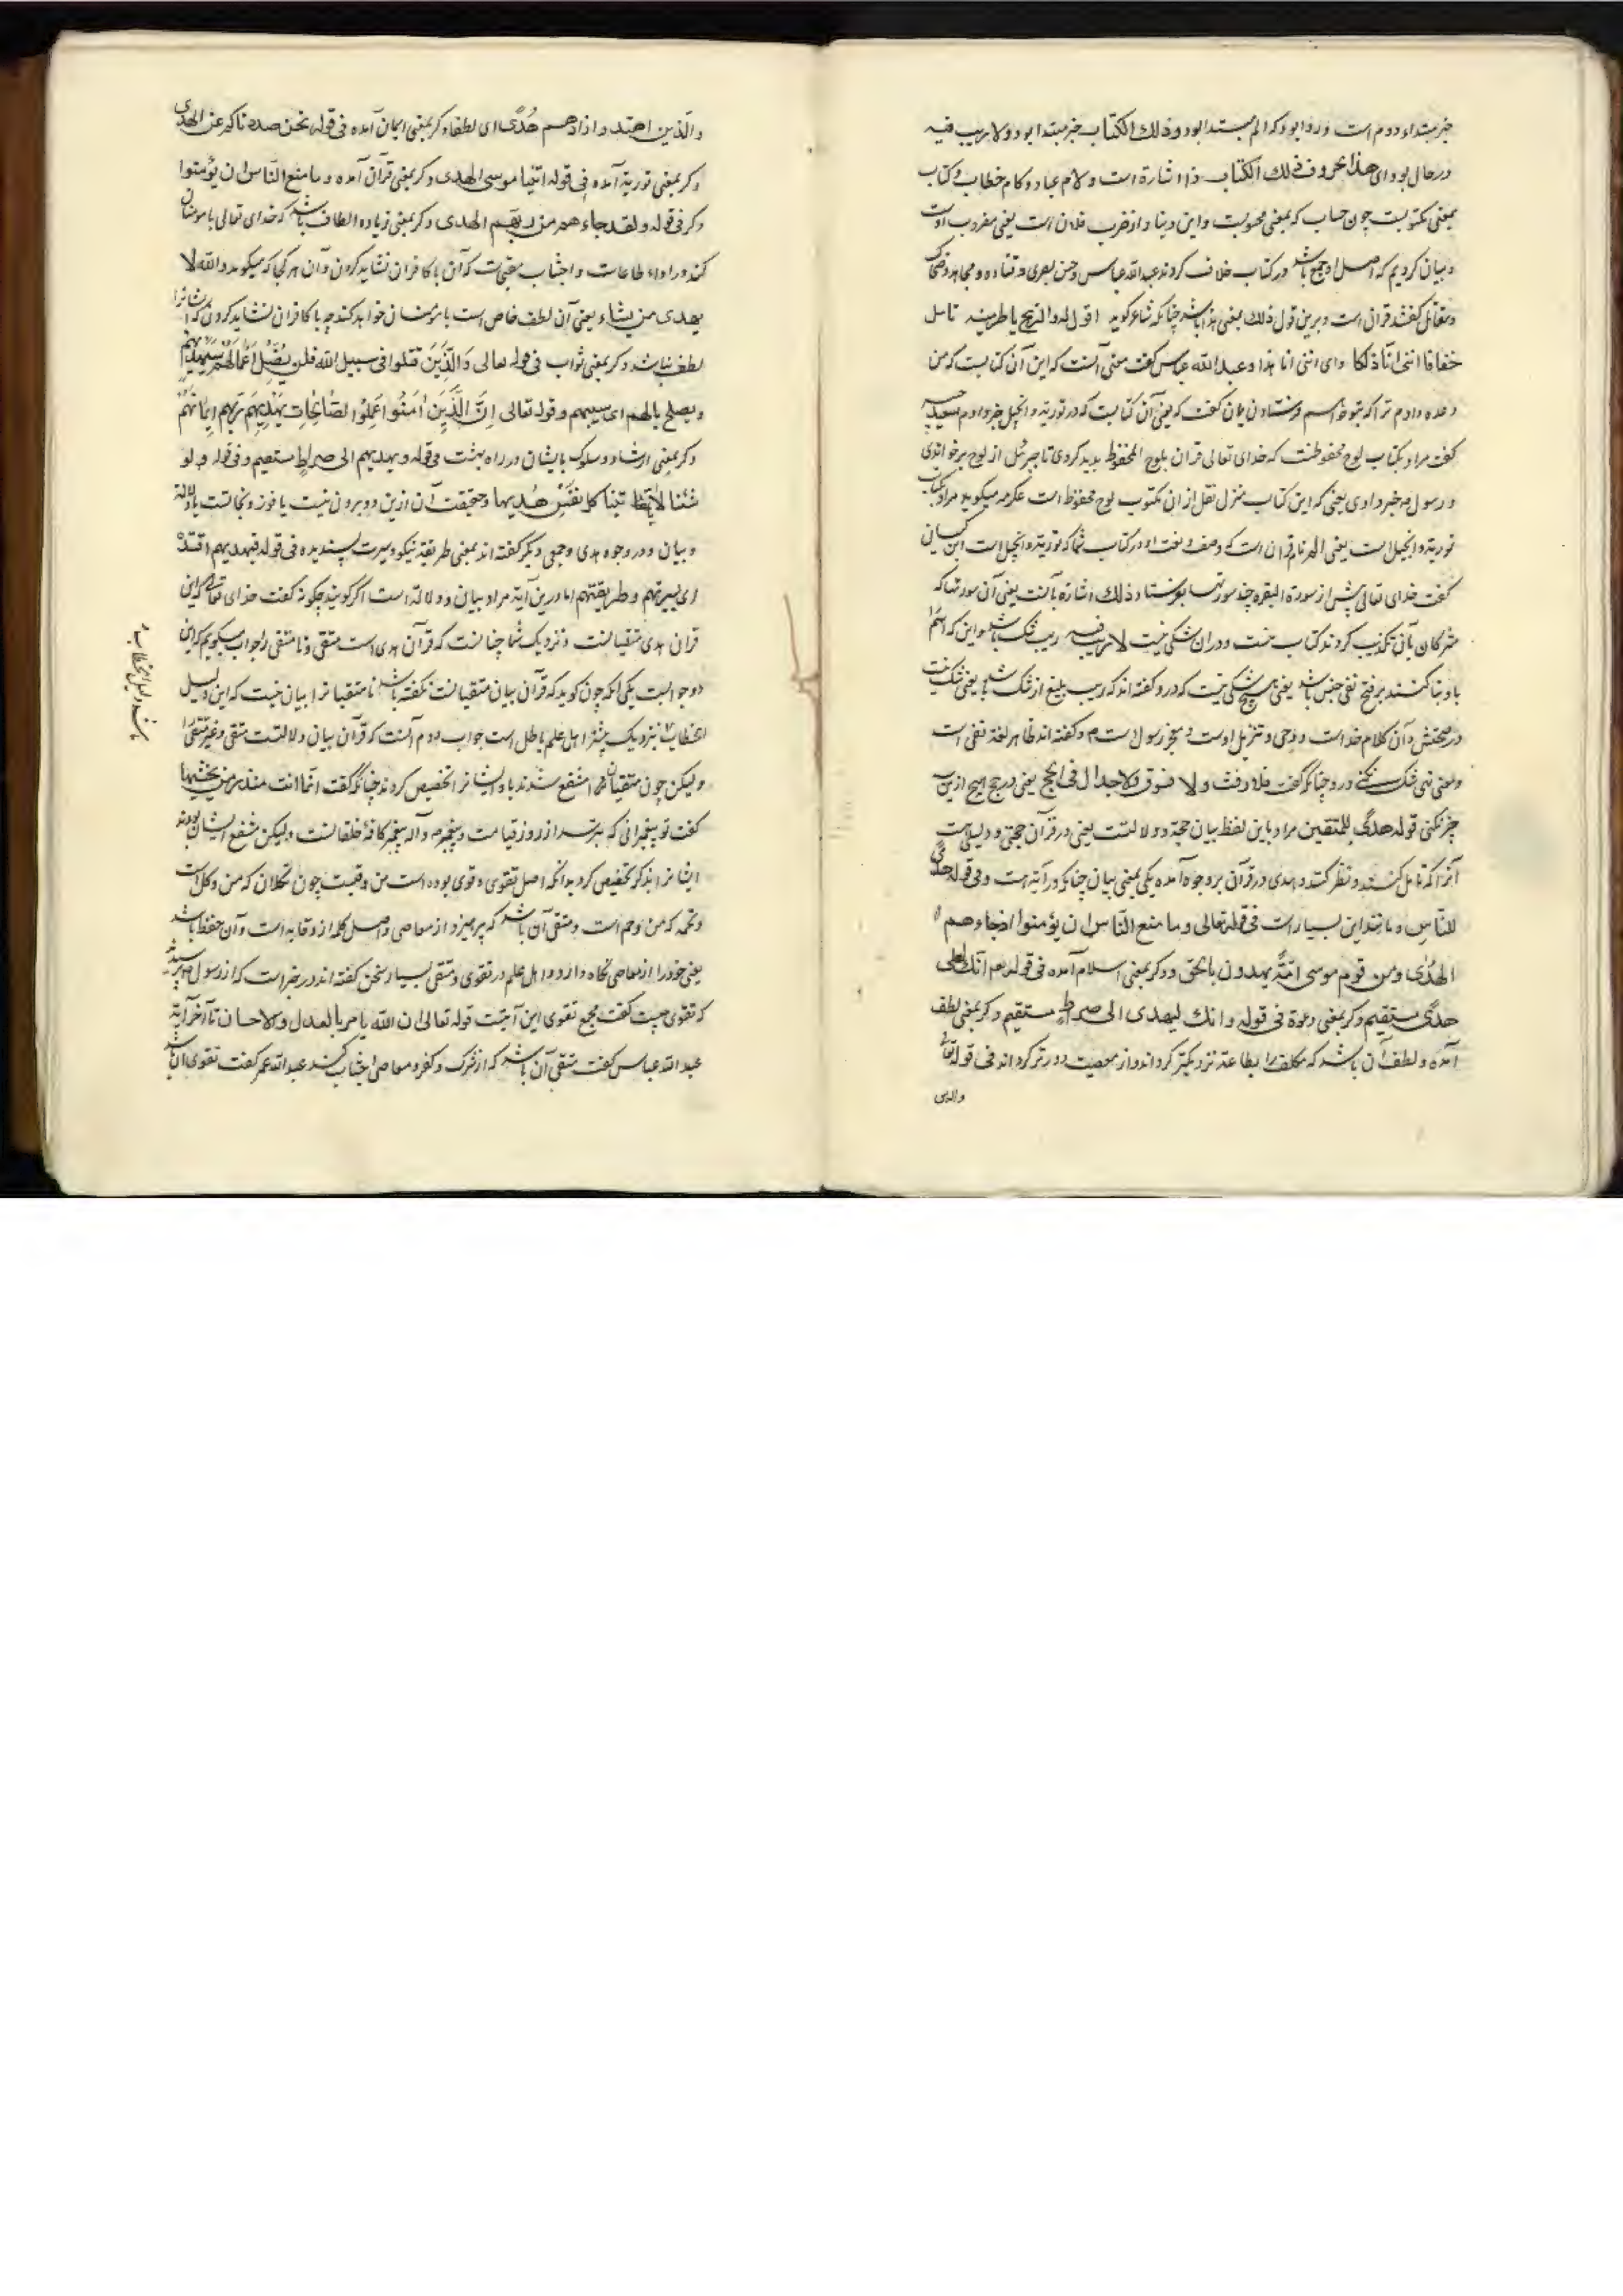 خبر مبتداء دوم است و روا بود که الم مبتدا بود و ذلك الکتاب خبر مبتدا بود و لا ریب فیه
در حال بود ای هذا الحروف ذلك الکتاب ذا اشارة است و لام عماد و کاف خطاب و کتاب
بمعنی مکتوبست چون حساب که بمعنی محسوبست و این دینار از ضرب فلان است یعنی مضروب اوست
و بیان کردیم که اصل او جمع باشد در کتاب خلاف کردند عبد الله عباس و حسن بصری و قتاده و مجاهد و ضحاک
و مقاتل گفتند قرآن است و برین قول ذلك بمعنی هذا باشد چنانکه شاعر گوید اقول له و الرمح یاطر متنه تامل
خفافا اننی انا ذلکا و ای اننی انا هذا و عبد الله عباس گفت معنی آنست که این آن کتابست که من
وعده دادم ترا که بتو خواهم فرستادن یمان گفت که یعنی آن کتابست که در توریة و انجیل خبر دادم سعید جبیر
گفت مراد بکتاب لوح محفوظست که خدای تعالی قرآن بلوح المحفوظ پدید کردی تا جبرئیل از لوح برخواندی
و رسول را خبر دادی یعنی که این کتاب منزل نقل از ان مکتوب لوح محفوظ است عکرمه میگوید مراد بکتاب
توریة و انجیل است یعنی الم نام قرآن است که وصف و نعت او در کتاب شما که توریة و انجیل است ابن کیسان
گفت خدای تعالی پیش از سورة البقره چند سورتها بفرستاد ذلك اشاره بآنست یعنی آن سورتها که
مشرکان بآن تکذیب کردند کتاب منست و در ان شکی نیست لا ریب فیه ریب شک باشد و این که اسم
با او بنا کنند بر فتح نفی جنس باشد یعنی هیچ شکی نیست که درو گفته اند که ریب بلیغ از شک باشد یعنی شک نیست
در صحتش و آن کلام خداست و وحی و تنزیل اوست و معجز رسول است و گفته اند ظاهر لفظ نفی است
و معنی نهی شک نکنی درو چنانکه گفت فلا رفث ولا فسوق ولا جدال فی الحج یعنی در حج هیچ ازین سه
چیز نکنی قوله هدی للمتقین مراد باین لفظ بیان حجة و دلالتست یعنی در قرآن حجتی و دلیلی هست
آنرا که تامل کنند و نظر کنند و هدی در قرآن بر وجوه آمده یکی بمعنی بیان چنانکه در آیه است و فی قوله هدی
للناس و مانند این بسیار است فی قوله تعالی و ما منع الناس ان یؤمنوا اذ جاءهم
الهدی و من قوم موسی امة یهدون بالحق و دگر بمعنی اسلام آمده فی قوله انك لعلی
هدی مستقیم و دگر بمعنی دعوة فی قوله و انك لیهدی الی صراط مستقیم و دگر بمعنی لطف
آمده و لطف آن باشد که مکلف را بطاعة نزدیکتر گرداند و از معصیت دورتر گرداند فی قوله تعالی
والذین
والذین اهتدوا زادهم هدی ای لطفا و دگر بمعنی ایمان آمده فی قوله نحن صددناکم عن الهدی
و دگر بمعنی توریة آمده فی قوله اتینا موسی الهدی و دگر بمعنی قرآن آمده و ما منع الناس ان یؤمنوا
و دگر فی قوله و لقد جاءهم من ربهم الهدی و دگر بمعنی زیاده الطاف باشد که خدای تعالی با مؤمنان
کند در اداء طاعات و اجتناب معصیت که آن با کافران نشاید کردن و آن هر کجا که میگوید والله لا
یهدی من یشاء یعنی آن لطف خاص است با مؤمنان خواهد کند چه با کافران نشاید کردن که ایشانرا
لطف نباشد و دگر بمعنی ثواب فی قوله تعالی وَالَّذینَ قتلوا فی سبیل الله فلن یُضِلَّ اَعْمَالَهُمْ سَیَهْدِیهِمْ
و یصلح بالهم ای سیثیبهم و قوله تعالی اِنَّ الَّذینَ اٰمَنُوا وَعَمِلُوا الصّٰالِحٰاتِ یَهْدِیهِمْ رَبُّهُمْ بِایمٰانِهِمْ
و دگر بمعنی ارشاد و سلوک بایشان در راه بهشت فی قوله و یهدیهم الی صراط مستقیم و فی قوله و لو
شئنا لاٰتینا کل نفس هُدیها و حقیقت آن ازین دو برون نیست یا فوز و نجاتست یا دلالة
و بیان و در وجوه هدی وجهی دیگر گفته اند بمعنی طریقه نیکو و سیرت پسندیده فی قوله فبهدیهم اقتده
ای بسیرتهم و طریقتهم اما درین آیة مراد بیان و دلالة است اگر گویند چگونه گفت خدای تعالی که این
قرآن هدی متقیانست و نزدیک شما چنانست که قرآن هدی است متقی و نامتقی را جواب میگویم که این
دو جوابست یکی آنکه چون گوید که قرآن بیان متقیانست نگفته باشد نامتقیانرا بیان نیست که این دلیل
الخطاب نزدیک بیشتر اهل علم باطل است جواب دوم آنست که قرآن بیان و دلالتست متقی و غیر متقی را
ولیکن چون متقیان منتفع شدند باو ایشانرا تخصیص کرد چنانکه گفت انما انت منذر من یخشیها
گفت تو پیغمبرانی که بترسد از روز قیامت و پیغمبر و آله پیغمبر کافه خلقانست ولیکن منتفع ایشان بودند
ایشانرا بذکر تخصیص کرد بدانکه اصل تقوی وقوی بوده است من وقیت چون تکلان که من وکل است
و تخمه که من وخم است و متقی آن باشد که پرهیزد از معاصی و اصل کلمه از وقایه است و آن حفظ باشد
یعنی خود را از معاصی نگاه دارد و اهل علم در تقوی و متقی بسیار سخن گفته اند در خبر است که از رسول پرسیدند
که تقوی چیست گفت مجمع تقوی این آیتست قوله تعالی ان الله یامر بالعدل والاحسان تا آخر آیة
عبد الله عباس گفت متقی آن باشد که از شرک و کفر و معاصی اجتناب کند عبد الله عمر گفت تقوی آن باشد
دلیل الخطاب